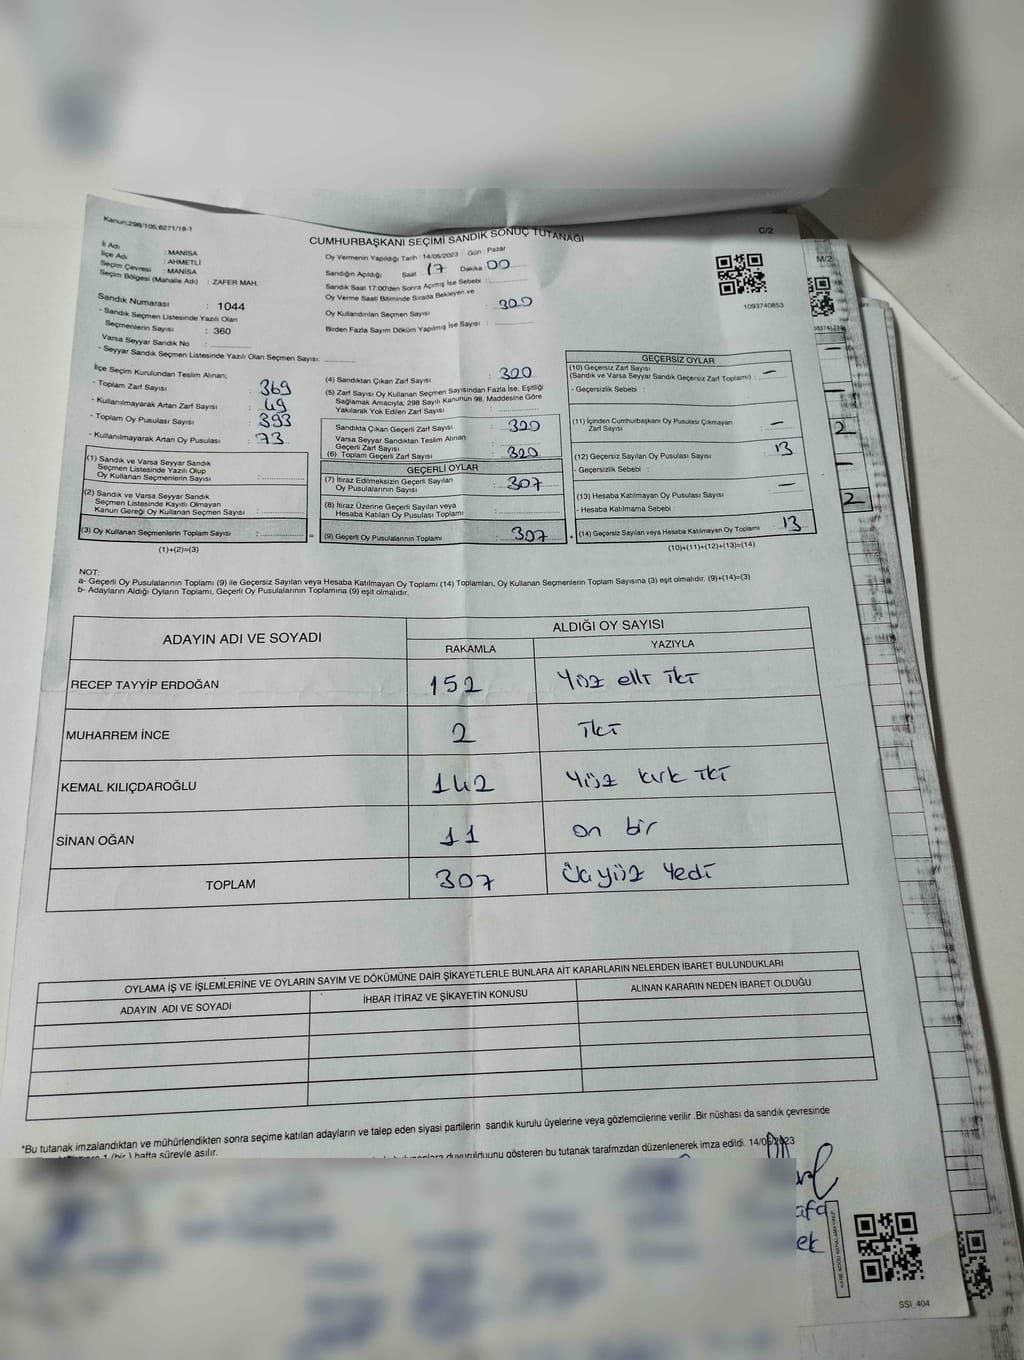 Kanun:298/105,6271/18-1
CUMHURBAŞKANI SEÇİMİ SANDIK SONUÇ TUTANAĞI
C/2
İl Adı : MANİSA
İlçe Adı : AHMETLİ
Seçim Çevresi : MANİSA
Seçim Bölgesi (Mahalle Adı) : ZAFER MAH.
Sandık Numarası : 1044
- Sandık Seçmen Listesinde Yazılı Olan
Seçmenlerin Sayısı : 360
Varsa Seyyar Sandık No :
- Seyyar Sandık Seçmen Listesinde Yazılı Olan Seçmen Sayısı:
Oy Vermenin Yapıldığı Tarih : 14/05/2023 Gün : Pazar
Sandığın Açıldığı Saat 17 Dakika 00
Sandık Saat 17:00'den Sonra Açılmış İse Sebebi :
Oy Verme Saati Bitiminde Sırada Bekleyen ve
Oy Kullandırılan Seçmen Sayısı : 320
Birden Fazla Sayım Döküm Yapılmış İse Sayısı :
1093740853
M/2
İlçe Seçim Kurulundan Teslim Alınan;
- Toplam Zarf Sayısı : 369
- Kullanılmayarak Artan Zarf Sayısı : 49
- Toplam Oy Pusulası Sayısı : 393
- Kullanılmayarak Artan Oy Pusulası : 73
(1) Sandık ve Varsa Seyyar Sandık
Seçmen Listesinde Yazılı Olup
Oy Kullanan Seçmenlerin Sayısı :
(2) Sandık ve Varsa Seyyar Sandık
Seçmen Listesinde Kayıtlı Olmayan
Kanun Gereği Oy Kullanan Seçmen Sayısı :
(3) Oy Kullanan Seçmenlerin Toplam Sayısı :
(1)+(2)=(3)
(4) Sandıktan Çıkan Zarf Sayısı : 320
(5) Zarf Sayısı Oy Kullanan Seçmen Sayısından Fazla İse, Eşitliği
Sağlamak Amacıyla; 298 Sayılı Kanunun 98. Maddesine Göre
Yakılarak Yok Edilen Zarf Sayısı :
Sandıkta Çıkan Geçerli Zarf Sayısı : 320
Varsa Seyyar Sandıktan Teslim Alınan
Geçerli Zarf Sayısı :
(6) Toplam Geçerli Zarf Sayısı : 320
GEÇERLİ OYLAR
(7) İtiraz Edilmeksizin Geçerli Sayılan
Oy Pusulalarının Sayısı : 307
(8) İtiraz Üzerine Geçerli Sayılan veya
Hesaba Katılan Oy Pusulası Toplamı :
= (9) Geçerli Oy Pusulalarının Toplamı : 307 +
GEÇERSİZ OYLAR
(10) Geçersiz Zarf Sayısı
(Sandık ve Varsa Seyyar Sandık Geçersiz Zarf Toplamı) : —
- Geçersizlik Sebebi :
(11) İçinden Cumhurbaşkanı Oy Pusulası Çıkmayan
Zarf Sayısı : —
(12) Geçersiz Sayılan Oy Pusulası Sayısı : 13
- Geçersizlik Sebebi :
(13) Hesaba Katılmayan Oy Pusulası Sayısı : —
- Hesaba Katılmama Sebebi :
(14) Geçersiz Sayılan veya Hesaba Katılmayan Oy Toplamı : 13
(10)+(11)+(12)+(13)=(14)
2
2
NOT:
a- Geçerli Oy Pusulalarının Toplamı (9) ile Geçersiz Sayılan veya Hesaba Katılmayan Oy Toplamı (14) Toplamları, Oy Kullanan Seçmenlerin Toplam Sayısına (3) eşit olmalıdır. (9)+(14)=(3)
b- Adayların Aldığı Oyların Toplamı, Geçerli Oy Pusulalarının Toplamına (9) eşit olmalıdır.
ADAYIN ADI VE SOYADI
ALDIĞI OY SAYISI
RAKAMLA YAZIYLA
RECEP TAYYİP ERDOĞAN 152 Yüz elli iki
MUHARREM İNCE 2 iki
KEMAL KILIÇDAROĞLU 142 Yüz kırk iki
SİNAN OĞAN 11 on bir
TOPLAM 307 üçyüz Yedi
OYLAMA İŞ VE İŞLEMLERİNE VE OYLARIN SAYIM VE DÖKÜMÜNE DAİR ŞİKAYETLERLE BUNLARA AİT KARARLARIN NELERDEN İBARET BULUNDUKLARI
ADAYIN ADI VE SOYADI İHBAR İTİRAZ VE ŞİKAYETİN KONUSU ALINAN KARARIN NEDEN İBARET OLDUĞU
*Bu tutanak imzalandıktan ve mühürlendikten sonra seçime katılan adayların ve talep eden siyasi partilerin sandık kurulu üyelerine veya gözlemcilerine verilir .Bir nüshası da sandık çevresinde
1 (bir ) hafta süreyle asılır.
duyurulduğunu gösteren bu tutanak tarafımzdan düzenlenerek imza edildi. 14/05/2023
SSI_404